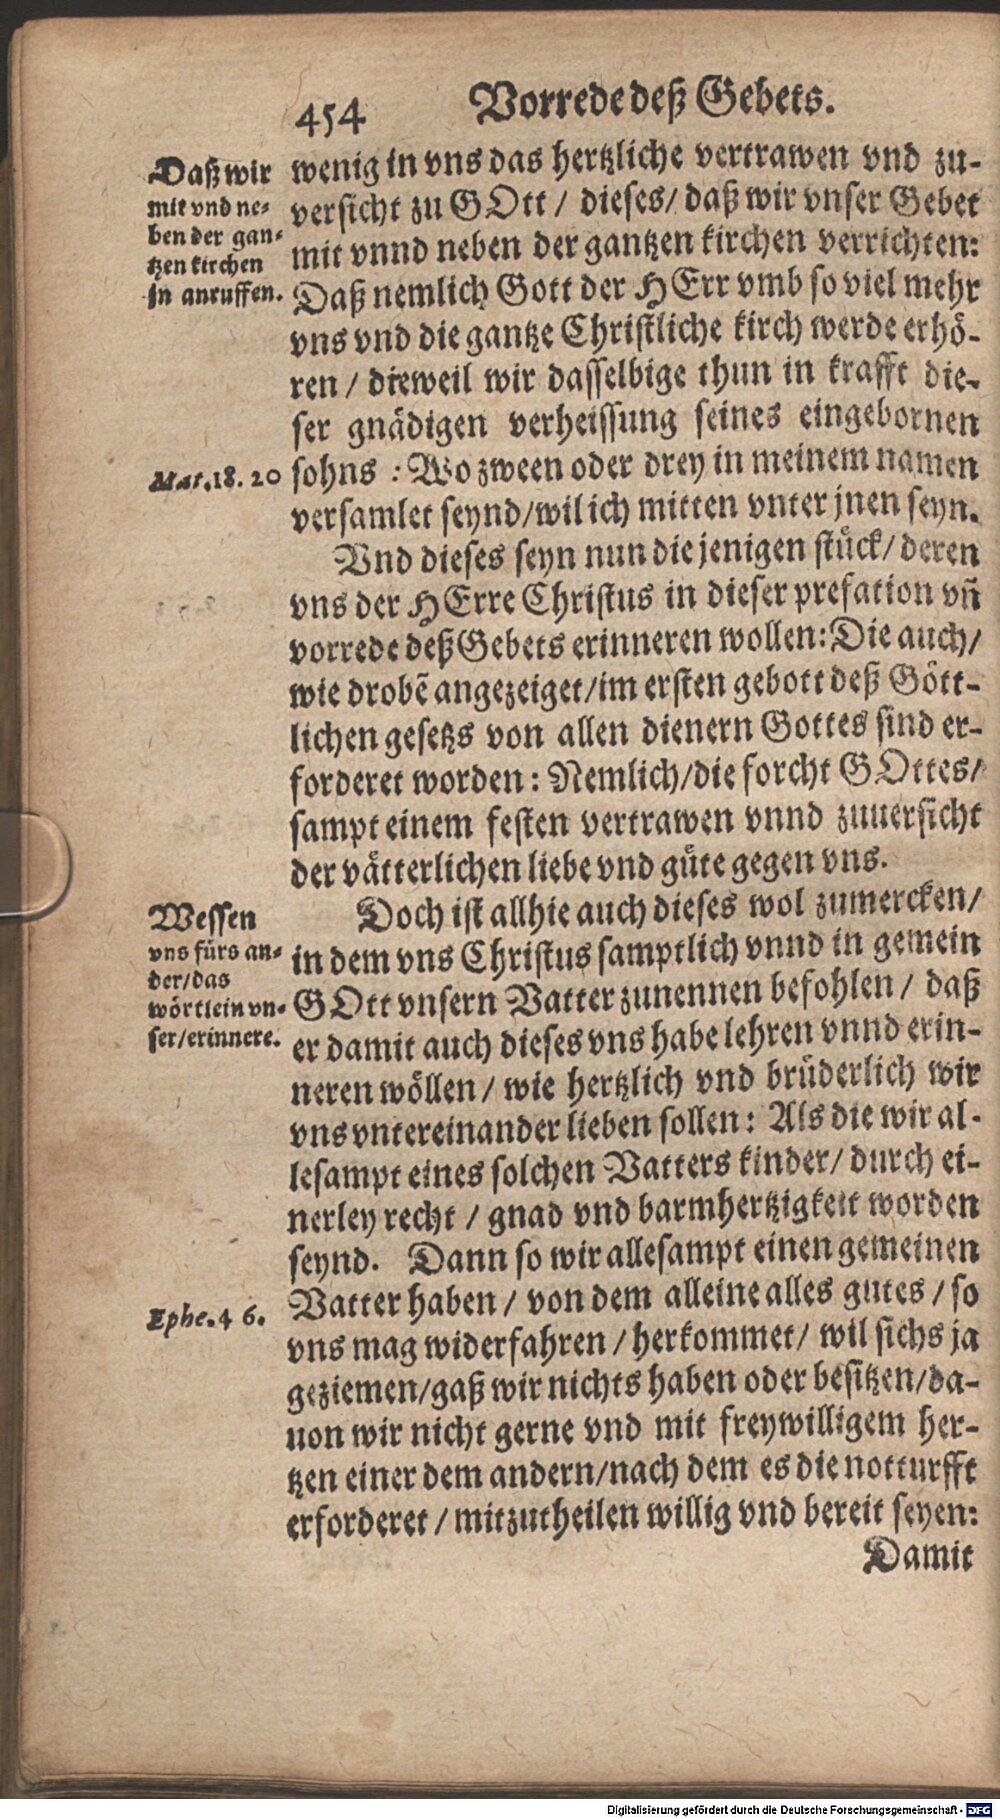 454
Vorrede deß Gebets.
Daß wir
mit vnd ne-
ben der gan-
tzen kirchen
jn anruffen.
wenig in vns das hertzliche vertrawen vnd zu-
versicht zu GOtt / dieses/ daß wir vnser Gebet
mit vnnd neben der gantzen kirchen verrichten:
Daß nemlich Gott der HErr vmb so viel mehr
vns vnd die gantze Christliche kirch werde erhö-
ren / dieweil wir dasselbige thun in krafft die-
ser gnädigen verheissung seines eingebornen
Mat.18. 20
sohns : Wo zween oder drey in meinem namen
versamlet seynd/wil ich mitten vnter jnen seyn.
Vnd dieses seyn nun die jenigen stück/ deren
vns der HErre Christus in dieser prefation vñ
vorrede deß Gebets erinneren wollen: Die auch/
wie drobẽ angezeiget/im ersten gebott deß Gött-
lichen gesetzs von allen dienern Gottes sind er-
forderet worden: Nemlich/die forcht GOttes/
sampt einem festen vertrawen vnnd zuuersicht
der vätterlichen liebe vnd güte gegen vns.
Wessen
vns fürs an-
der/das
wörtlein vn-
ser/erinnere.
Doch ist allhie auch dieses wol zumercken/
in dem vns Christus samptlich vnnd in gemein
GOtt vnsern Vatter zunennen befohlen / daß
er damit auch dieses vns habe lehren vnnd erin-
neren wöllen / wie hertzlich vnd brüderlich wir
vns vntereinander lieben sollen: Als die wir al-
lesampt eines solchen Vatters kinder/ durch ei-
nerley recht / gnad vnd barmhertzigkeit worden
seynd. Dann so wir allesampt einen gemeinen
Ephe.4 6.
Vatter haben / von dem alleine alles gutes / so
vns mag widerfahren / herkommet/ wil sichs ja
geziemen/gaß wir nichts haben oder besitzen/da-
uon wir nicht gerne vnd mit freywilligem her-
tzen einer dem andern/nach dem es die notturfft
erforderet / mitzutheilen willig vnd bereit seyen:
Damit
Digitalisierung gefördert durch die Deutsche Forschungsgemeinschaft - DFG